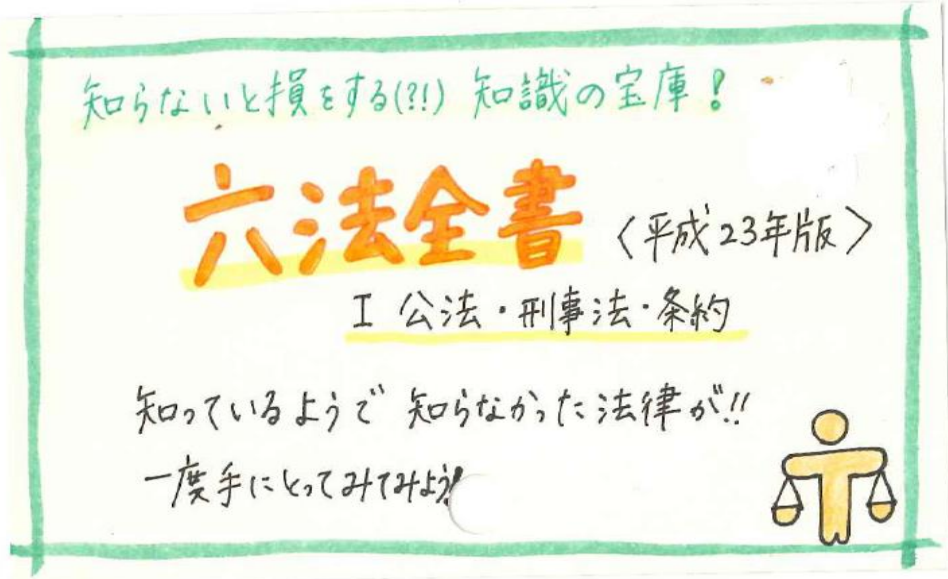 知らないと損をする(?!) 知識の宝庫!
六法全書 〈平成23年版〉
I 公法・刑事法・条約
知っているようで 知らなかった法律が!!
一度手にとってみてみよう!